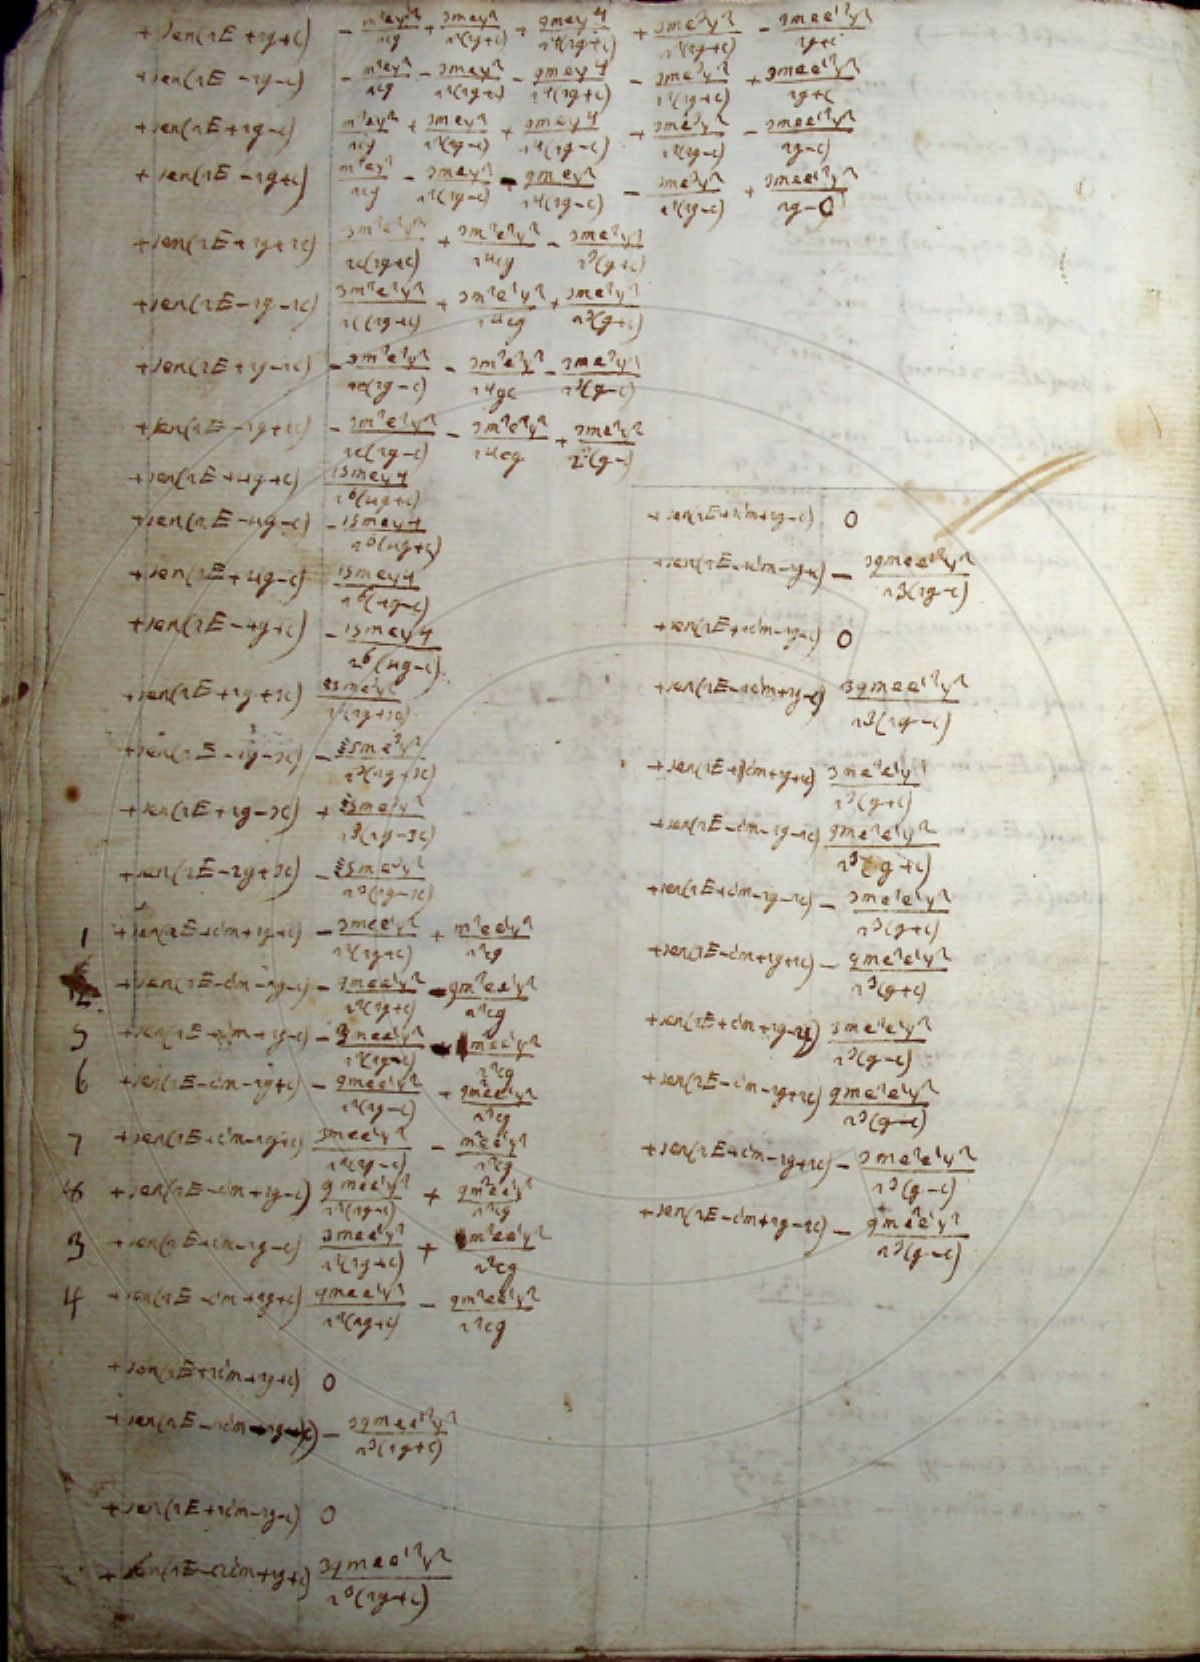 + sen(2E+2g+c) − m²ey²/2cg + 3mey²/2²(2g+c) + 9mey4/2⁴(2g+c) + 3me³y²/2²(2g+c) − 3mee'²y²/2g+c
+ sen(2E−2g−c) − m²ey²/2cg − 3mey²/2²(2g+c) − 9mey4/2⁴(2g+c) − 3me³y²/2²(2g+c) + 3mee'²y²/2g+c
+ sen(2E+2g−c) m²ey²/2cg + 3mey²/2²(2g−c) + 9mey4/2⁴(2g−c) + 3me³y²/2²(2g−c) − 3mee'²y²/2g−c
+ sen(2E−2g+c) m²ey²/2cg − 3mey²/2²(2g−c) − 9mey²/2⁴(2g−c) − 3me³y²/2²(2g−c) + 3mee'²y²/2g−c
+ sen(2E+2g+2c) 3m²e²y²/2c(2g+c) + 3m²e²y²/2⁴cg − 3me²y²/2³(g+c)
+ sen(2E−2g−2c) 3m²e²y²/2c(2g+c) + 3m²e²y²/2⁴cg + 3me²y²/2³(g+c)
+ sen(2E+2g−2c) − 3m²e²y²/2c(2g−c) − 3m²e²y²/2⁴gc − 3me²y²/2³(g−c)
+ sen(2E−2g+2c) − 3m²e²y²/2c(2g−c) − 3m²e²y²/2⁴cg + 3me²y²/2³(g−c)
+ sen(2E+4g+c) 15mey4/2⁶(4g+c)
+ sen(2E−4g−c) − 15mey4/2⁶(4g+c)
+ sen(2E+4g−c) 15mey4/2⁶(4g−c)
+ sen(2E−4g+c) − 15mey4/2⁶(4g−c)
+ sen(2E+2g+3c)
+ sen(2E−2g−3c)
+ sen(2E+2g−3c)
+ sen(2E−2g+3c)
1 + sen(2E+c'm+2g+c) − 3mee'y²/2²(2g+c) + m²ee'y²/2²cg
2 + sen(2E−c'm−2g−c) − 9mee'y²/2²(2g+c) − 9m²ee'y²/2²cg
5 + sen(2E+c'm+2g−c) − 3mee'y²/2²(2g−c)
6 + sen(2E−c'm−2g+c) − 9mee'y²/2²(2g−c) + 9m²ee'y²/2²cg
7 + sen(2E+c'm−2g+c) 3mee'y²/2²(2g−c) − m²ee'y²/2²cg
8 + sen(2E−c'm+2g−c) 9mee'y²/2²(2g−c) + 9m²ee'y²/2²cg
3 + sen(2E+c'm−2g−c) 3mee'y²/2²(2g+c) + m²ee'y²/2²cg
4 + sen(2E−c'm+2g+c) 9mee'y²/2²(2g+c) − 9m²ee'y²/2²cg
+ sen(2E+2c'm+2g+c) 0
+ sen(2E−2c'm−2g−c) − 39mee'²y²/2³(2g+c)
+ sen(2E+2c'm−2g−c) 0
+ sen(2E−2c'm+2g+c) 39mee'²y²/2³(2g+c)
+ sen(2E+2c'm+2g−c) 0
+ sen(2E−2c'm−2g+c) − 39mee'²y²/2³(2g−c)
+ sen(2E+2c'm−2g+c) 0
+ sen(2E−2c'm+2g−c) 39mee'²y²/2³(2g−c)
+ sen(2E+c'm+2g+2c) 3me²e'y²/2³(g+c)
+ sen(2E−c'm−2g−2c) 9me²e'y²/2³(g+c)
+ sen(2E+c'm−2g−2c) − 3me²e'y²/2³(g+c)
+ sen(2E−c'm+2g+2c) − 9me²e'y²/2³(g+c)
+ sen(2E+c'm+2g−2c) 3me²e'y²/2³(g−c)
+ sen(2E−c'm−2g+2c) 9me²e'y²/2³(g−c)
+ sen(2E+c'm−2g+2c) − 3me²e'y²/2³(g−c)
+ sen(2E−c'm+2g−2c) − 9me²e'y²/2³(g−c)